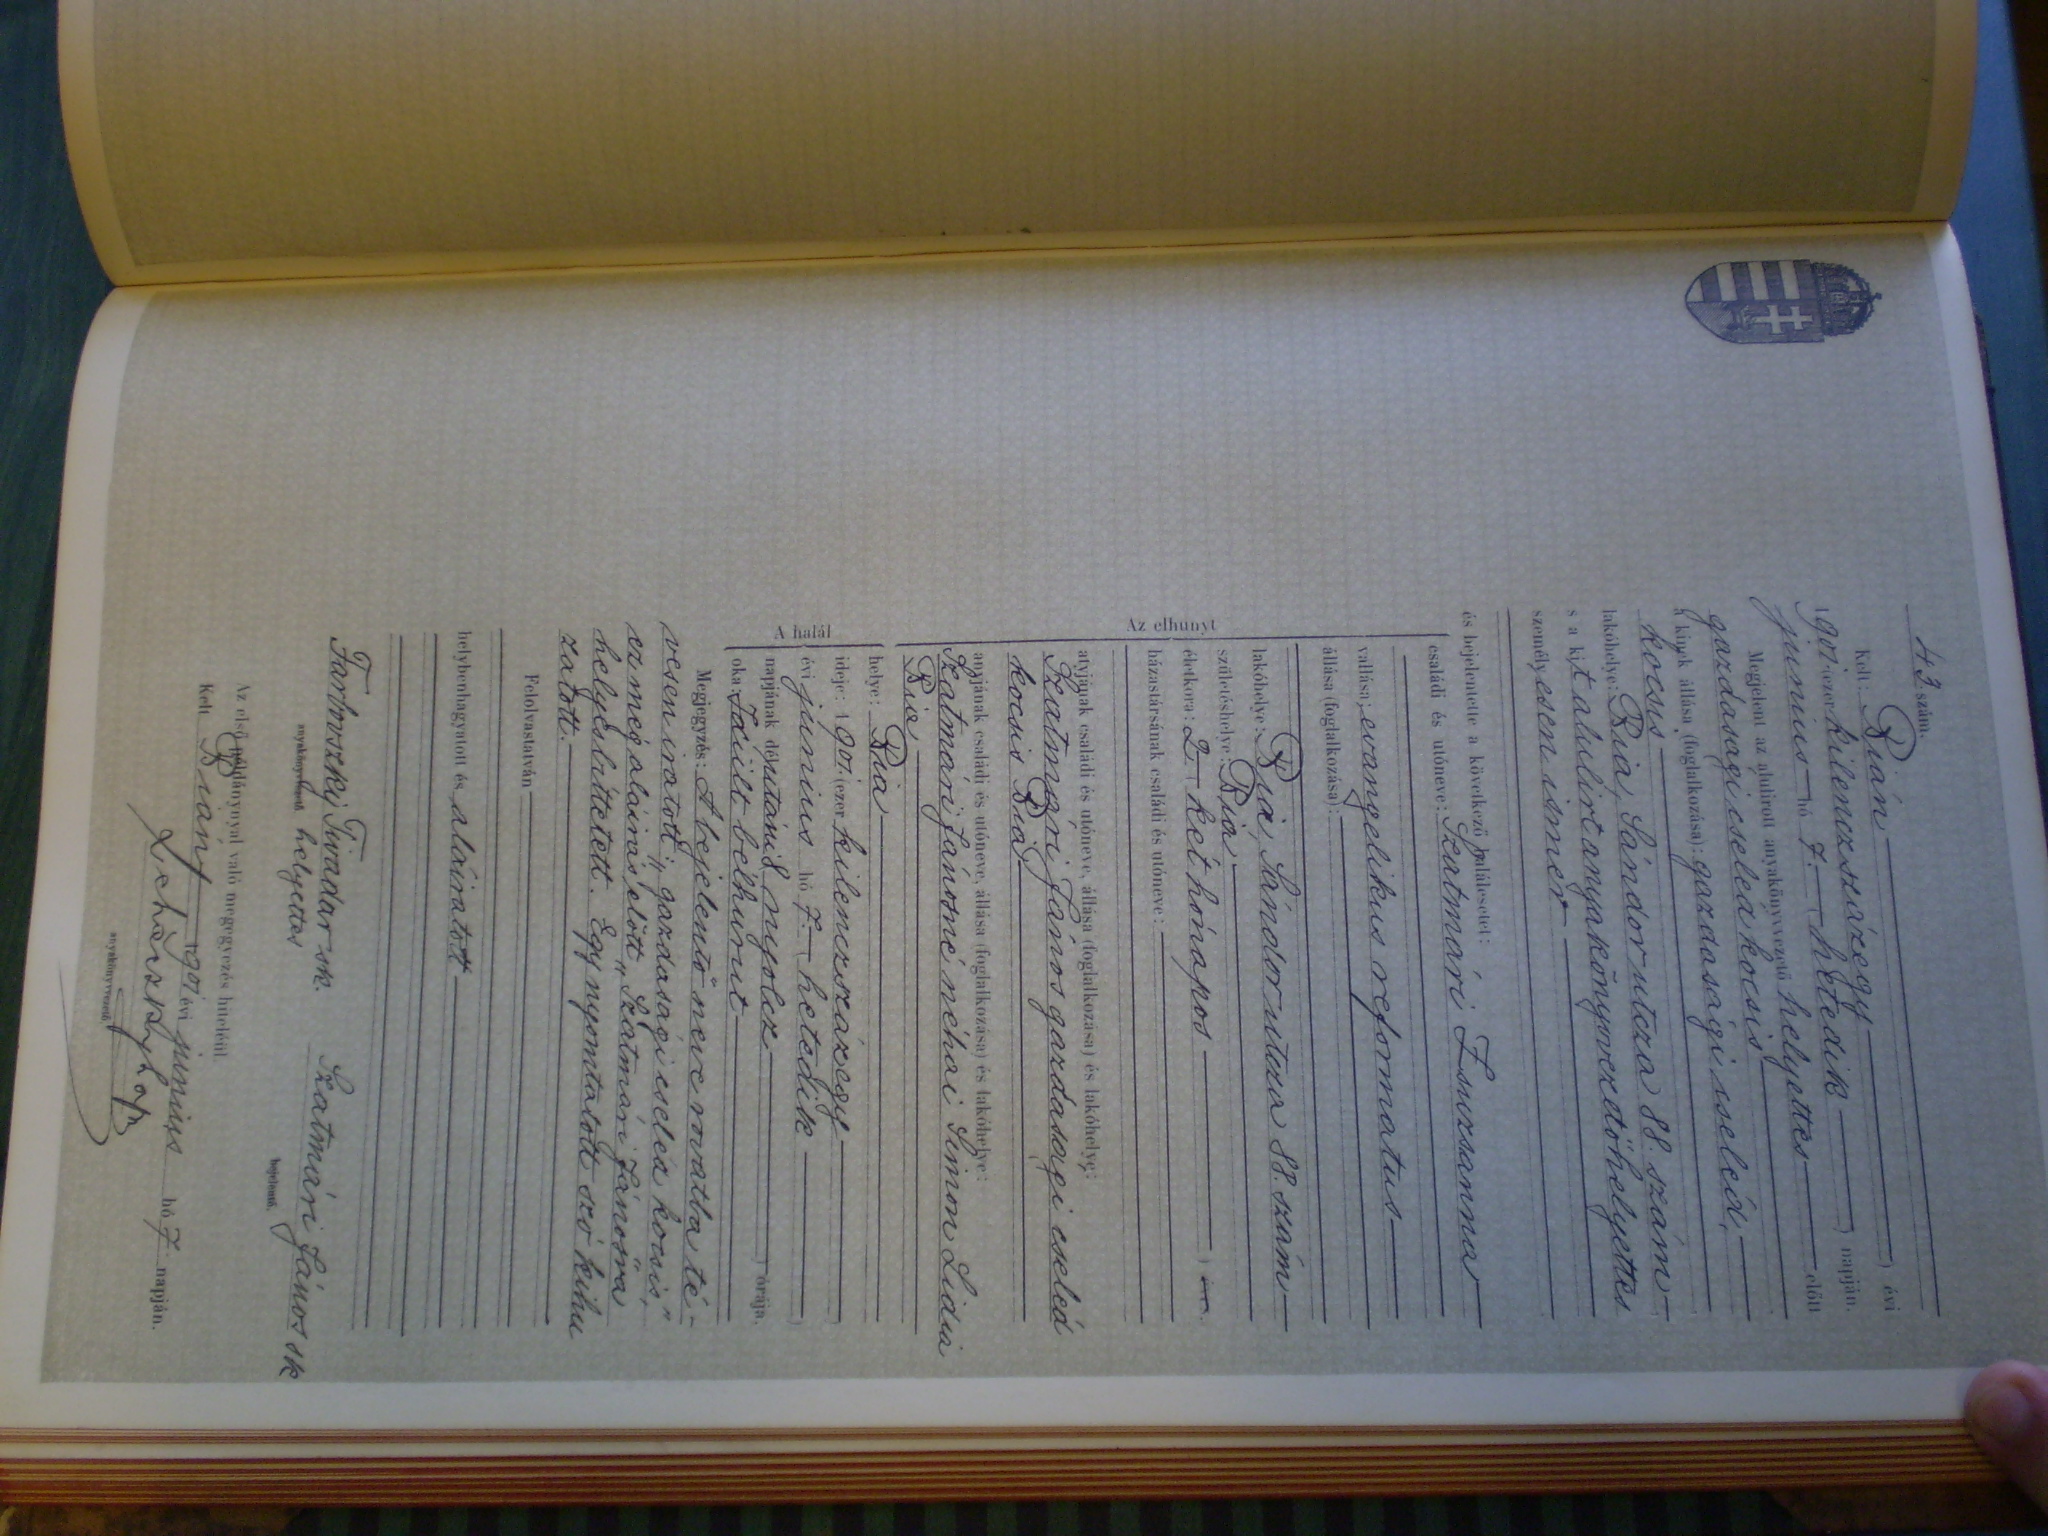 43 szám.
Kelt: Bián ) évi
1901 (ezer kilenczszázegy
junius hó 7. ( hetedik ) napján.
Megjelent az alulirott anyakönyvvezető helyettes előtt
gazdasági cseléd kocsis
a kinek állása (foglalkozása): gazdasági cseléd,
kocsis
lakóhelye: Bia, Sándor utcza 88. szám
s a kit alulirt anyakönyvvezetőhelyettes
személyesen ismer
és bejelentette a következő halálesetet:
családi és utóneve: Szatmári Zsuzsanna
vallása: evangelikus reformatus
állása (foglalkozása):
lakóhelye: Bia, Sándor utcza 88. szám
születéshelye: Bia
életkora: 2 két hónapos ) éve.
házastársának családi és utóneve:
Az elhunyt
atyjának családi és utóneve, állása (foglalkozása) és lakóhelye:
Szatmári János gazdasági cseléd
kocsis Bia
anyjának családi és utóneve, állása (foglalkozása) és lakóhelye:
Szatmári Jánosné néhai Simon Lidia
Bia
A halál
helye: Bia
ideje: 1901 (ezer kilenczszázegy )
évi június hó 7. hetedik )
napjának délutáni 8 nyolcz ) órája.
oka: Idült bélhurut
Megjegyzés: A bejelentő neve rovatba té-
vesen iratott „gazdasági cseléd kocsis",
ez még aláirás előtt „Szatmári Jánosra
helyesbittetett. Egy nyomtatott szó kihu
zatott.
Felolvastatván
helybenhagyatott és aláiratott
Tivadar sk. Szatmári János sk
anyakönyvvezető helyettes bejelentő.
Az első példánynyal való megegyezés hiteléül
Kelt Bián, 1901 évi junius hó 7 napján.
anyakönyvvezető.